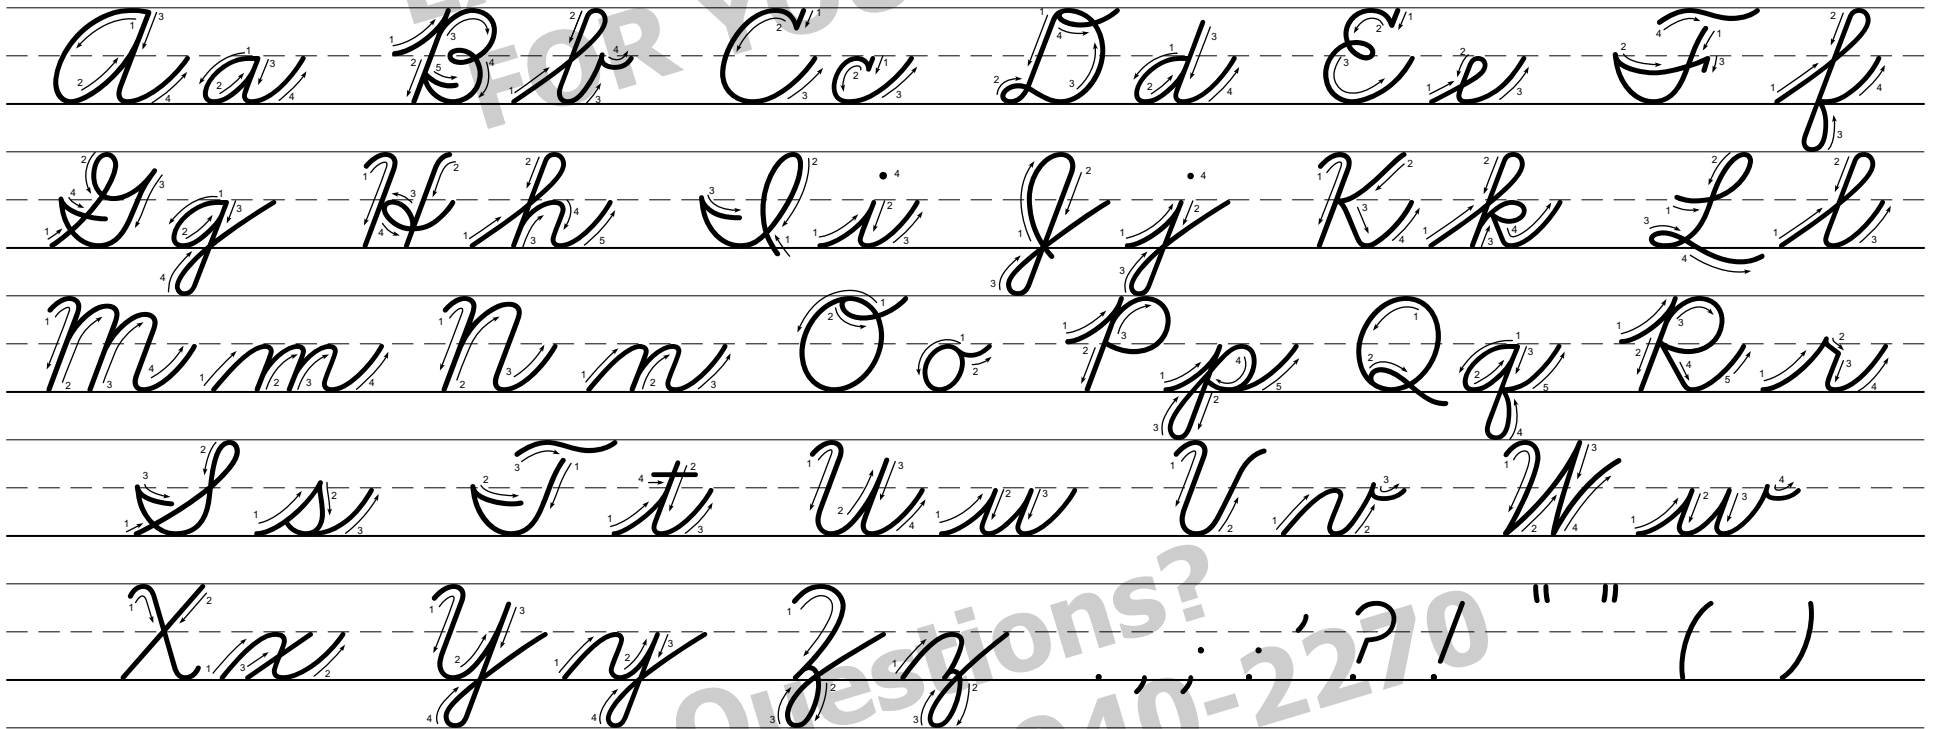 FOR YOU
A a B b C c D d E e F f
G g H h I i J j K k L l
M m N n O o P p Q q R r
S s T t U u V v W w
X x Y y Z z . , ; : ' ? ! " " ( )
Questions?
40-2270